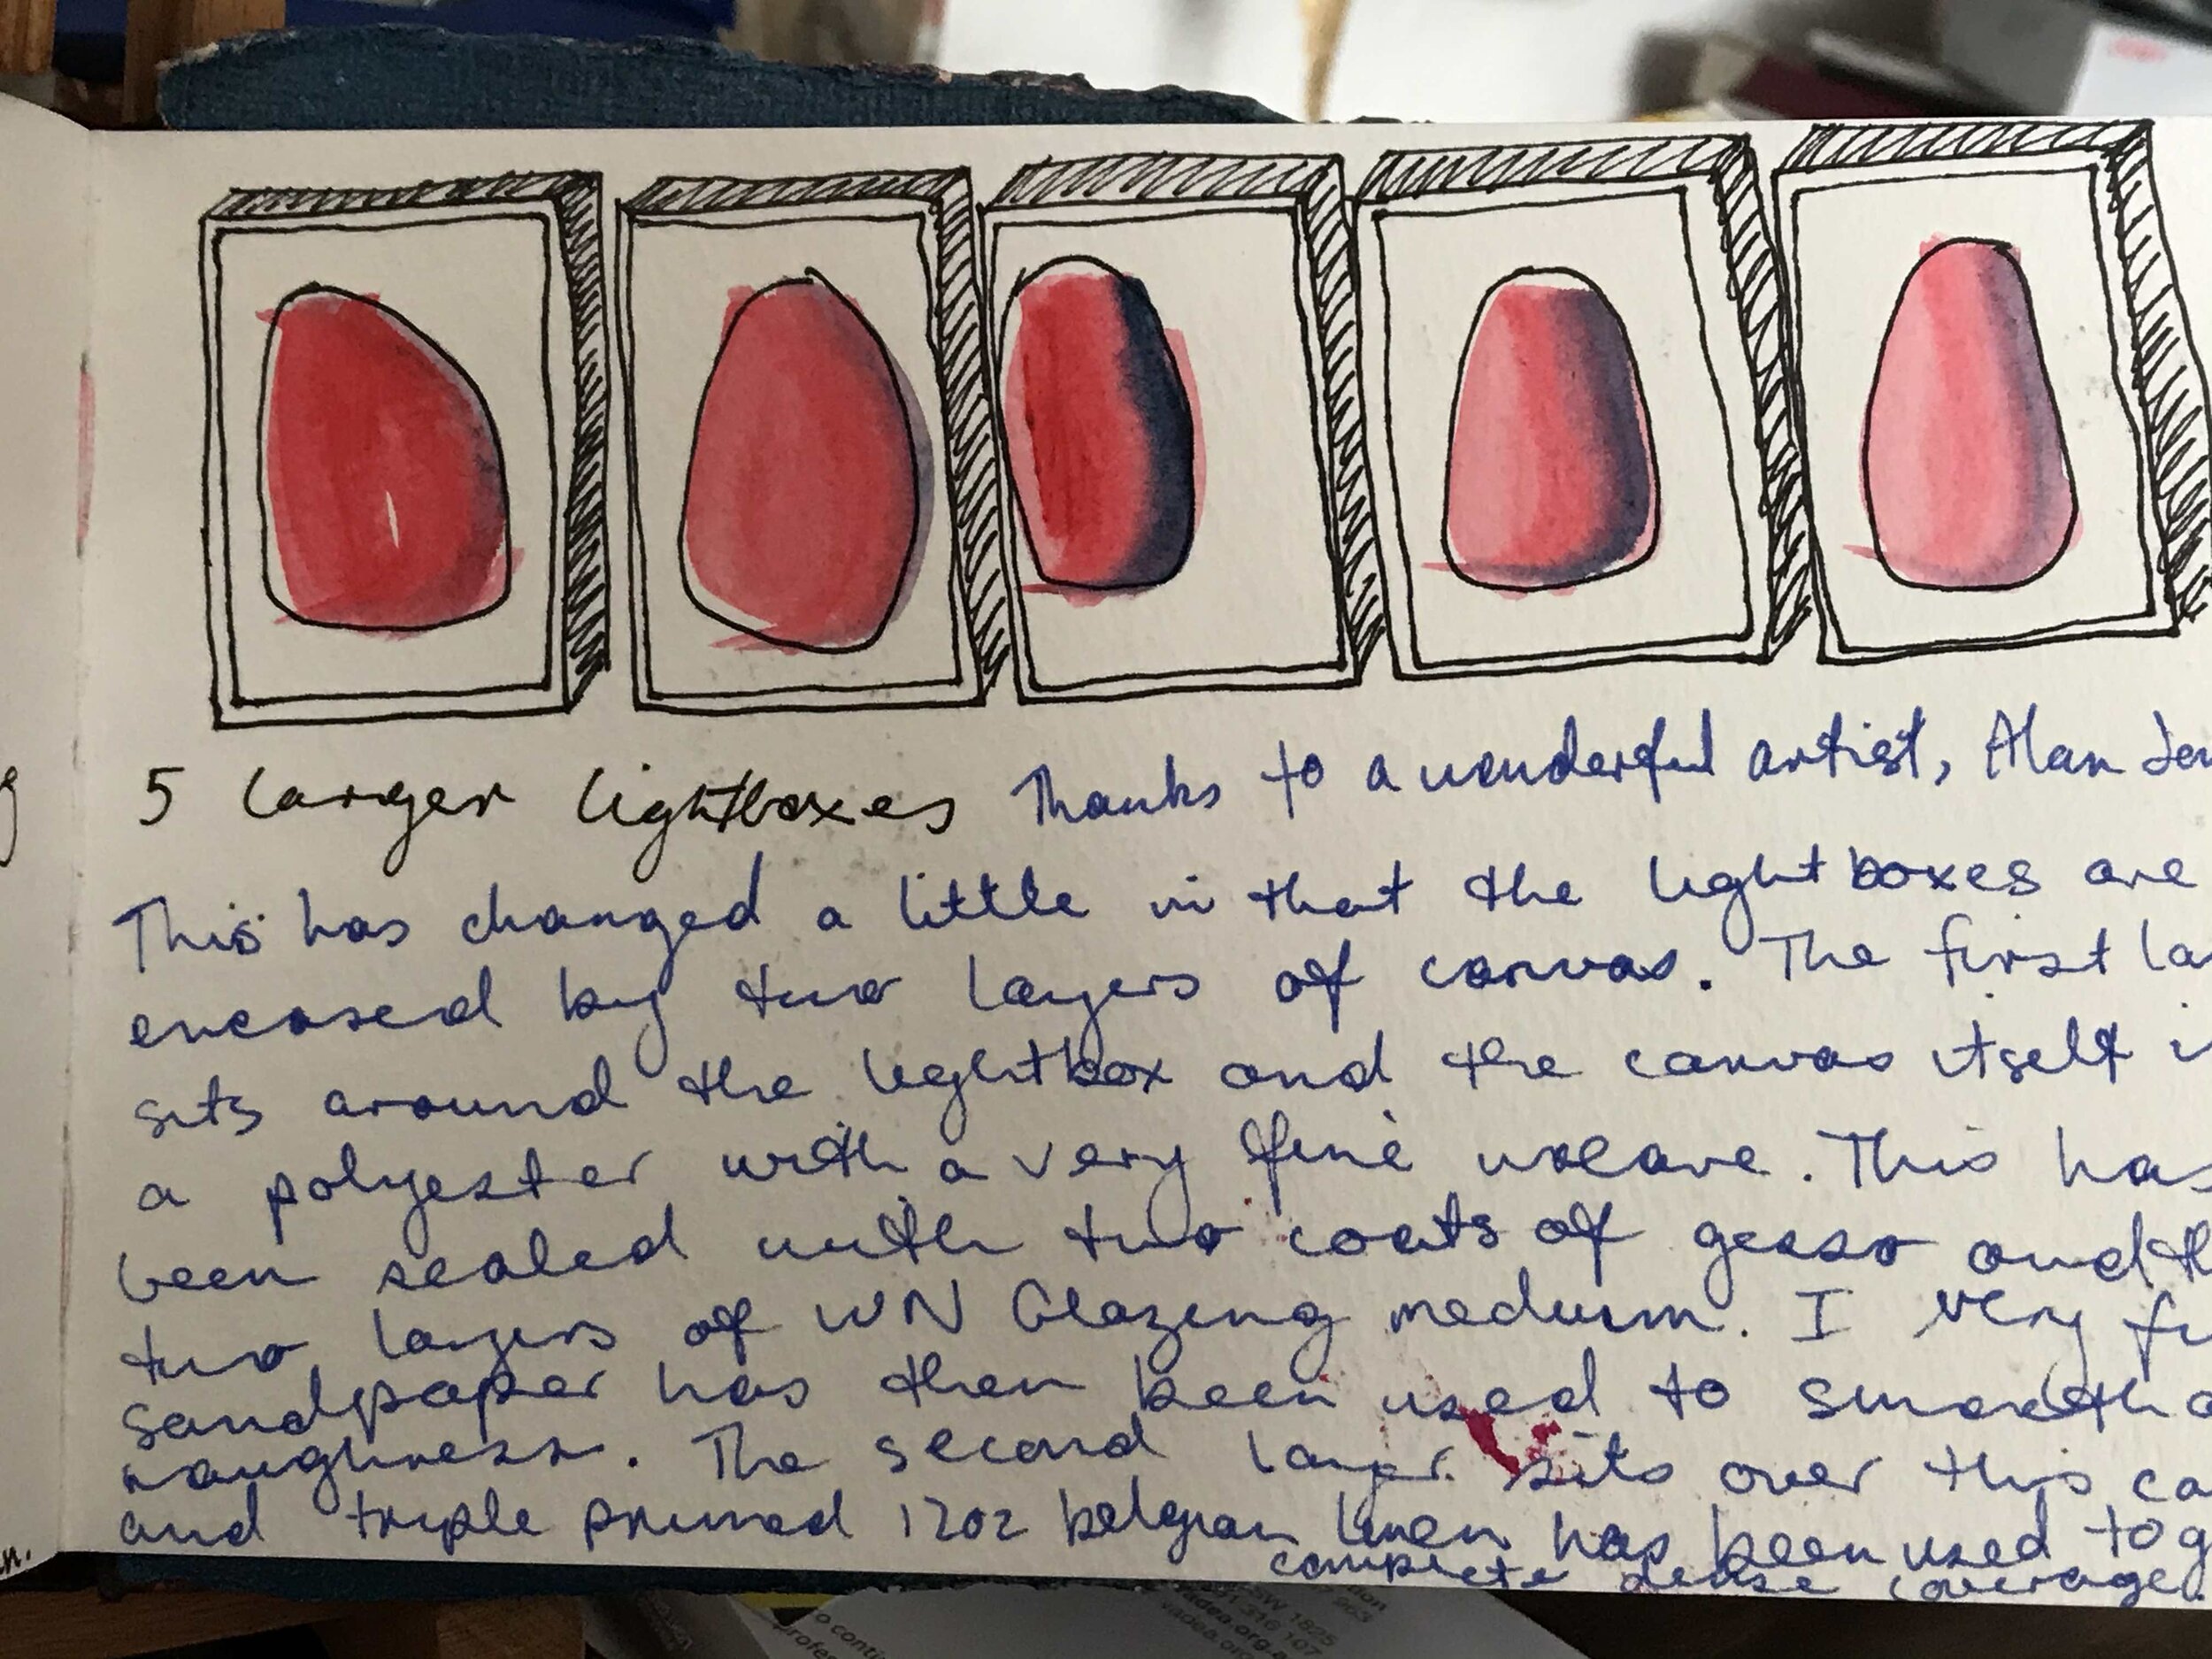 5 larger lightboxes Thanks to a wonderful artist, Alan
This has changed a little in that the lightboxes are
encased by two layers of canvas. The first la
sits around the lightbox and the canvas itself i
a polyester with a very fine weave. This has
been sealed with two coats of gesso and th
two layers of WN Glazing medium. I very fi
sandpaper has then been used to smooth
roughness. The second layer sits over this ca
and triple primed 12oz belgian linen has been used to g
complete dense coverage.
n.
SW 1825
963
316 107
vadea.org
o conti
profes